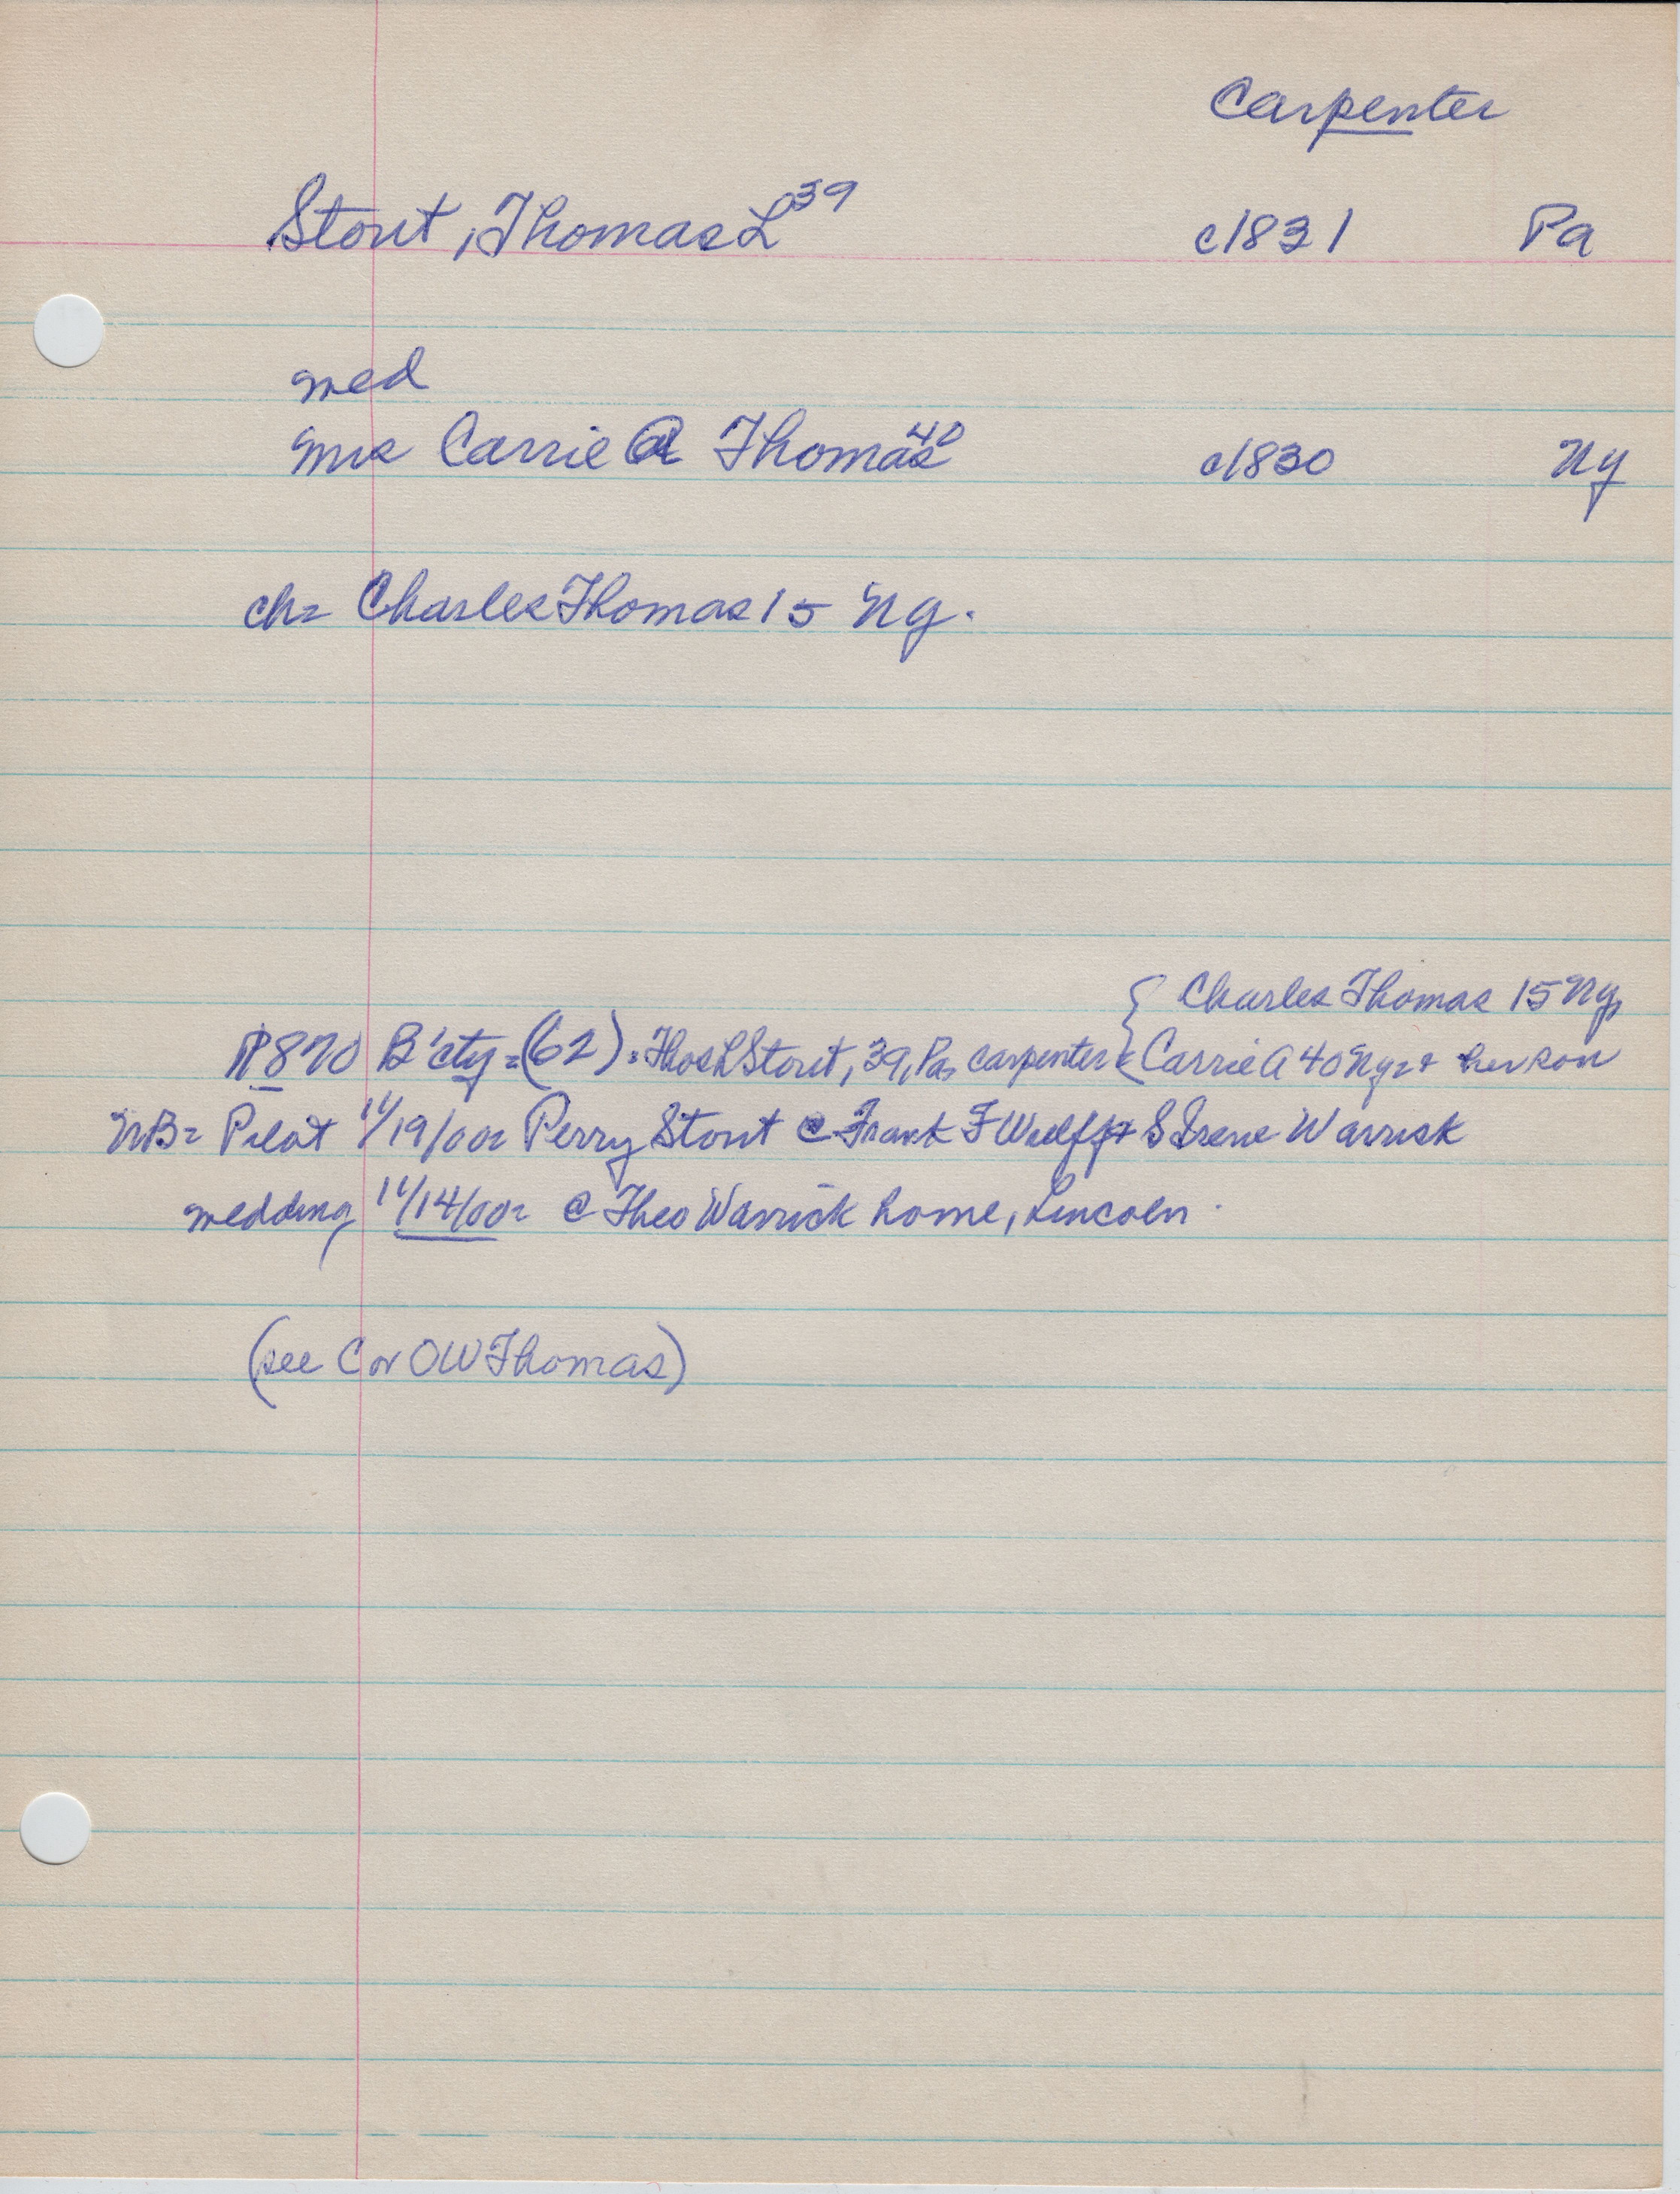 Carpenter
Stout, Thomas L 39 c1831 Pa
med
Mrs Carrie A Thomas 40 c1830 Ny
ch= Charles Thomas 15 Ny.
{ Charles Thomas 15 Ny,
1870 B'cty=(62)= Thos L Stout, 39, Pa, carpenter & { Carrie A 40 Ny= + her son
NB= Pilot 11/19/00= Perry Stout @ Frank F Wulff + S Irene Warrick
wedding 11/14/00= @ Theo Warrick home, Lincoln.
(see C or OW Thomas)